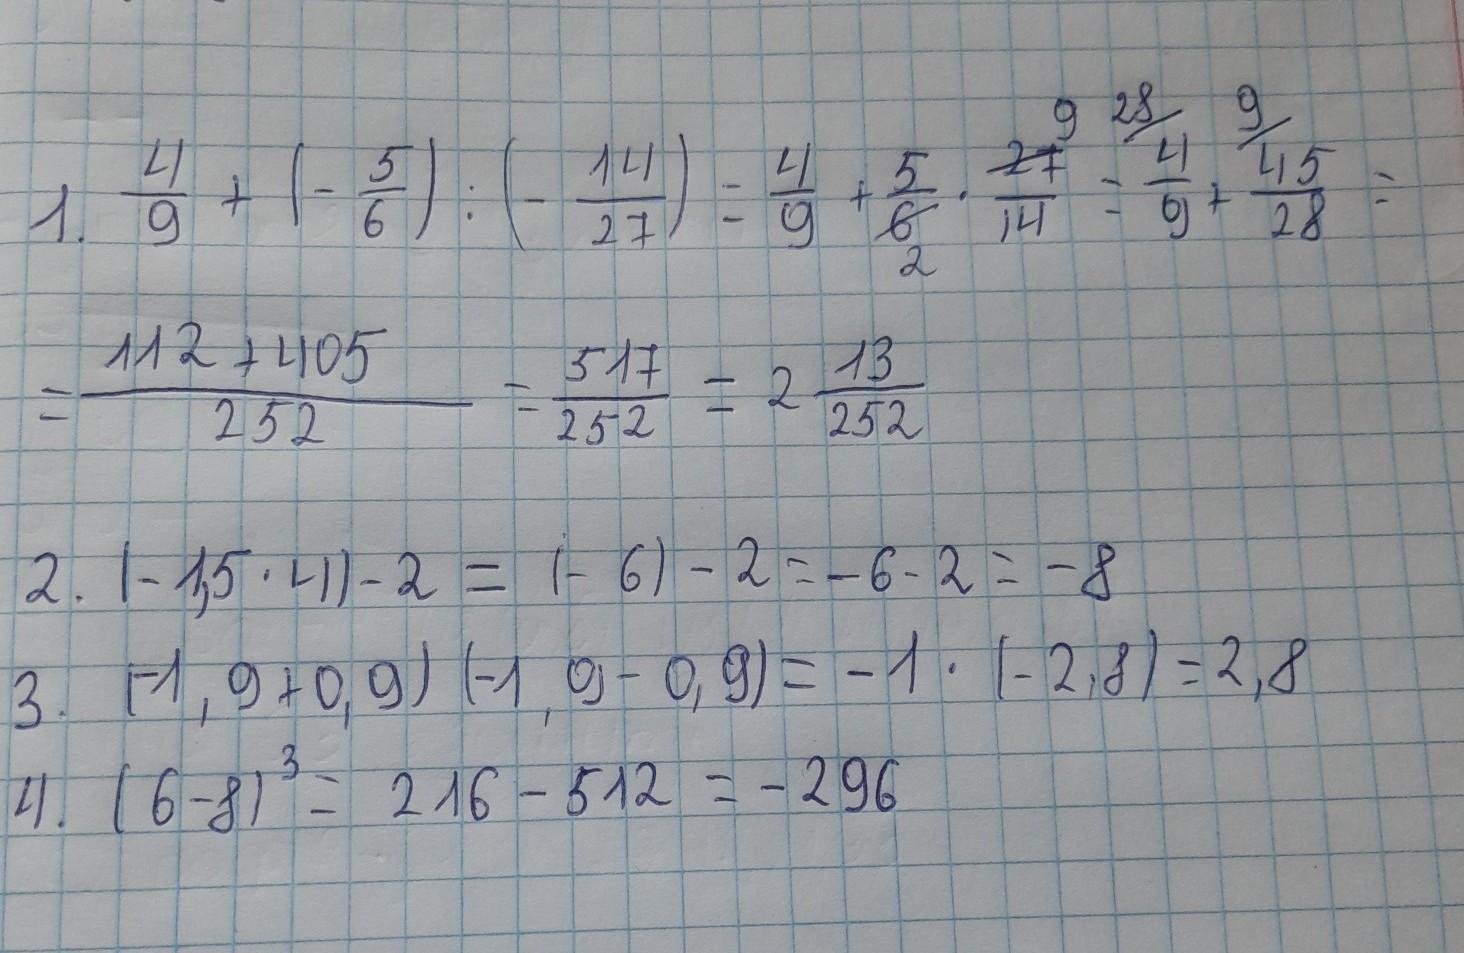 1. 4/9 + (- 5/6) : (- 14/27) = 4/9 + 5/6 2 · 27 9/14 = 28/ 4/9 + 9/ 45/28 =
= 112+405/252 = 517/252 = 2 13/252
2. (-1,5·4)-2 = (-6)-2=-6-2=-8
3. (-1,9+0,9)(-1,9-0,9)=-1·(-2,8)=2,8
4. (6-8)³= 216-512 = -296